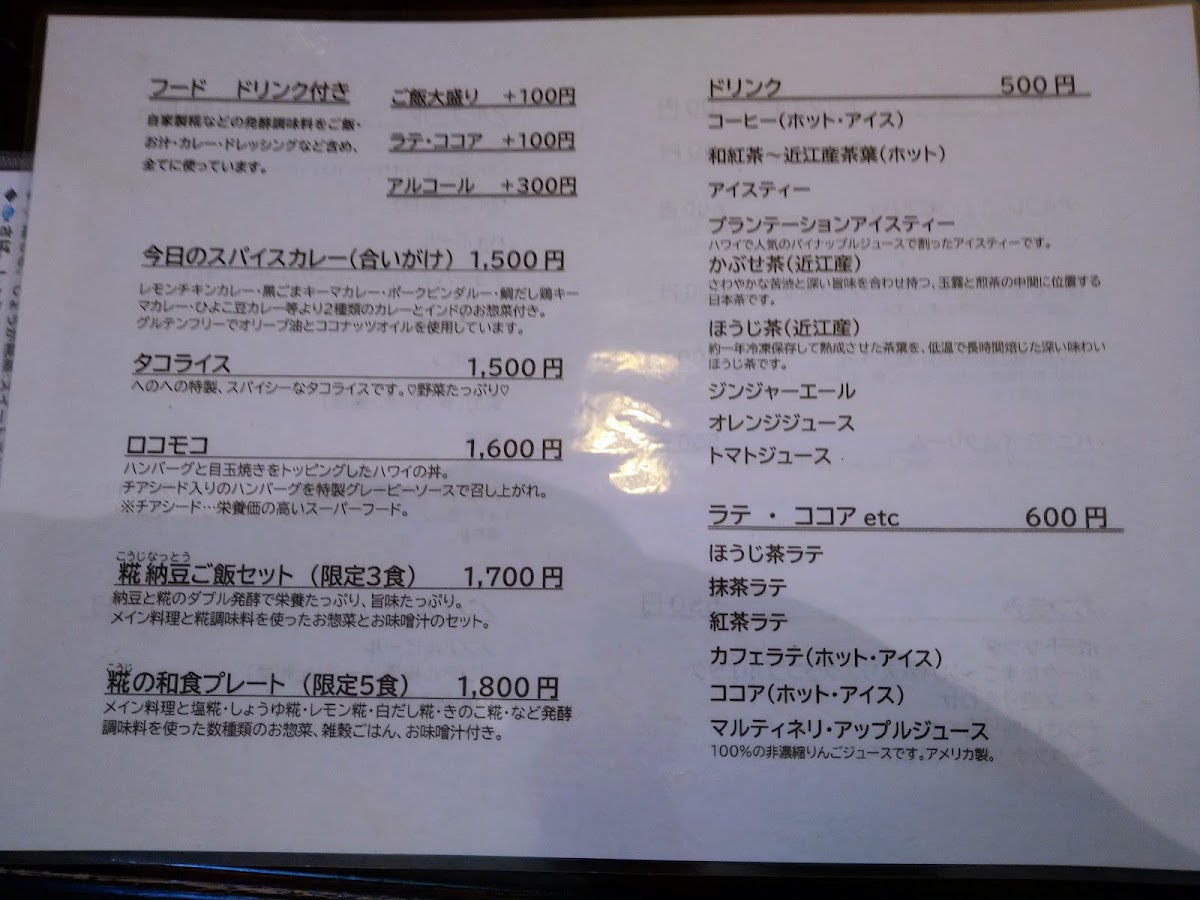 フード　ドリンク付き
自家製糀などの発酵調味料をご飯・
お汁・カレー・ドレッシングなど含め、
全てに使っています。
ご飯大盛り　+100円
ラテ・ココア　+100円
アルコール　+300円
今日のスパイスカレー(合いがけ)　1,500円
レモンチキンカレー・黒ごまキーマカレー・ポークビンダルー・鯛だし鶏キー
マカレー・ひよこ豆カレー等より2種類のカレーとインドのお惣菜付き。
グルテンフリーでオリーブ油とココナッツオイルを使用しています。
タコライス　1,500円
へのへの特製、スパイシーなタコライスです。♡野菜たっぷり♡
ロコモコ　1,600円
ハンバーグと目玉焼きをトッピングしたハワイの丼。
チアシード入りのハンバーグを特製グレービーソースで召し上がれ。
※チアシード…栄養価の高いスーパーフード。
こうじなっとう
糀納豆ご飯セット（限定3食）　1,700円
納豆と糀のダブル発酵で栄養たっぷり、旨味たっぷり。
メイン料理と糀調味料を使ったお惣菜とお味噌汁のセット。
こうじ
糀の和食プレート（限定5食）　1,800円
メイン料理と塩糀・しょうゆ糀・レモン糀・白だし糀・きのこ糀・など発酵
調味料を使った数種類のお惣菜、雑穀ごはん、お味噌汁付き。
ドリンク　500円
コーヒー(ホット・アイス)
和紅茶～近江産茶葉(ホット)
アイスティー
プランテーションアイスティー
ハワイで人気のパイナップルジュースで割ったアイスティーです。
かぶせ茶(近江産)
さわやかな苦渋と深い旨味を合わせ持つ、玉露と煎茶の中間に位置する
日本茶です。
ほうじ茶(近江産)
約一年冷凍保存して熟成させた茶葉を、低温で長時間焙じた深い味わい
ほうじ茶です。
ジンジャーエール
オレンジジュース
トマトジュース
ラテ ・ ココア etc　600円
ほうじ茶ラテ
抹茶ラテ
紅茶ラテ
カフェラテ(ホット・アイス)
ココア(ホット・アイス)
マルティネリ・アップルジュース
100%の非濃縮りんごジュースです。アメリカ製。